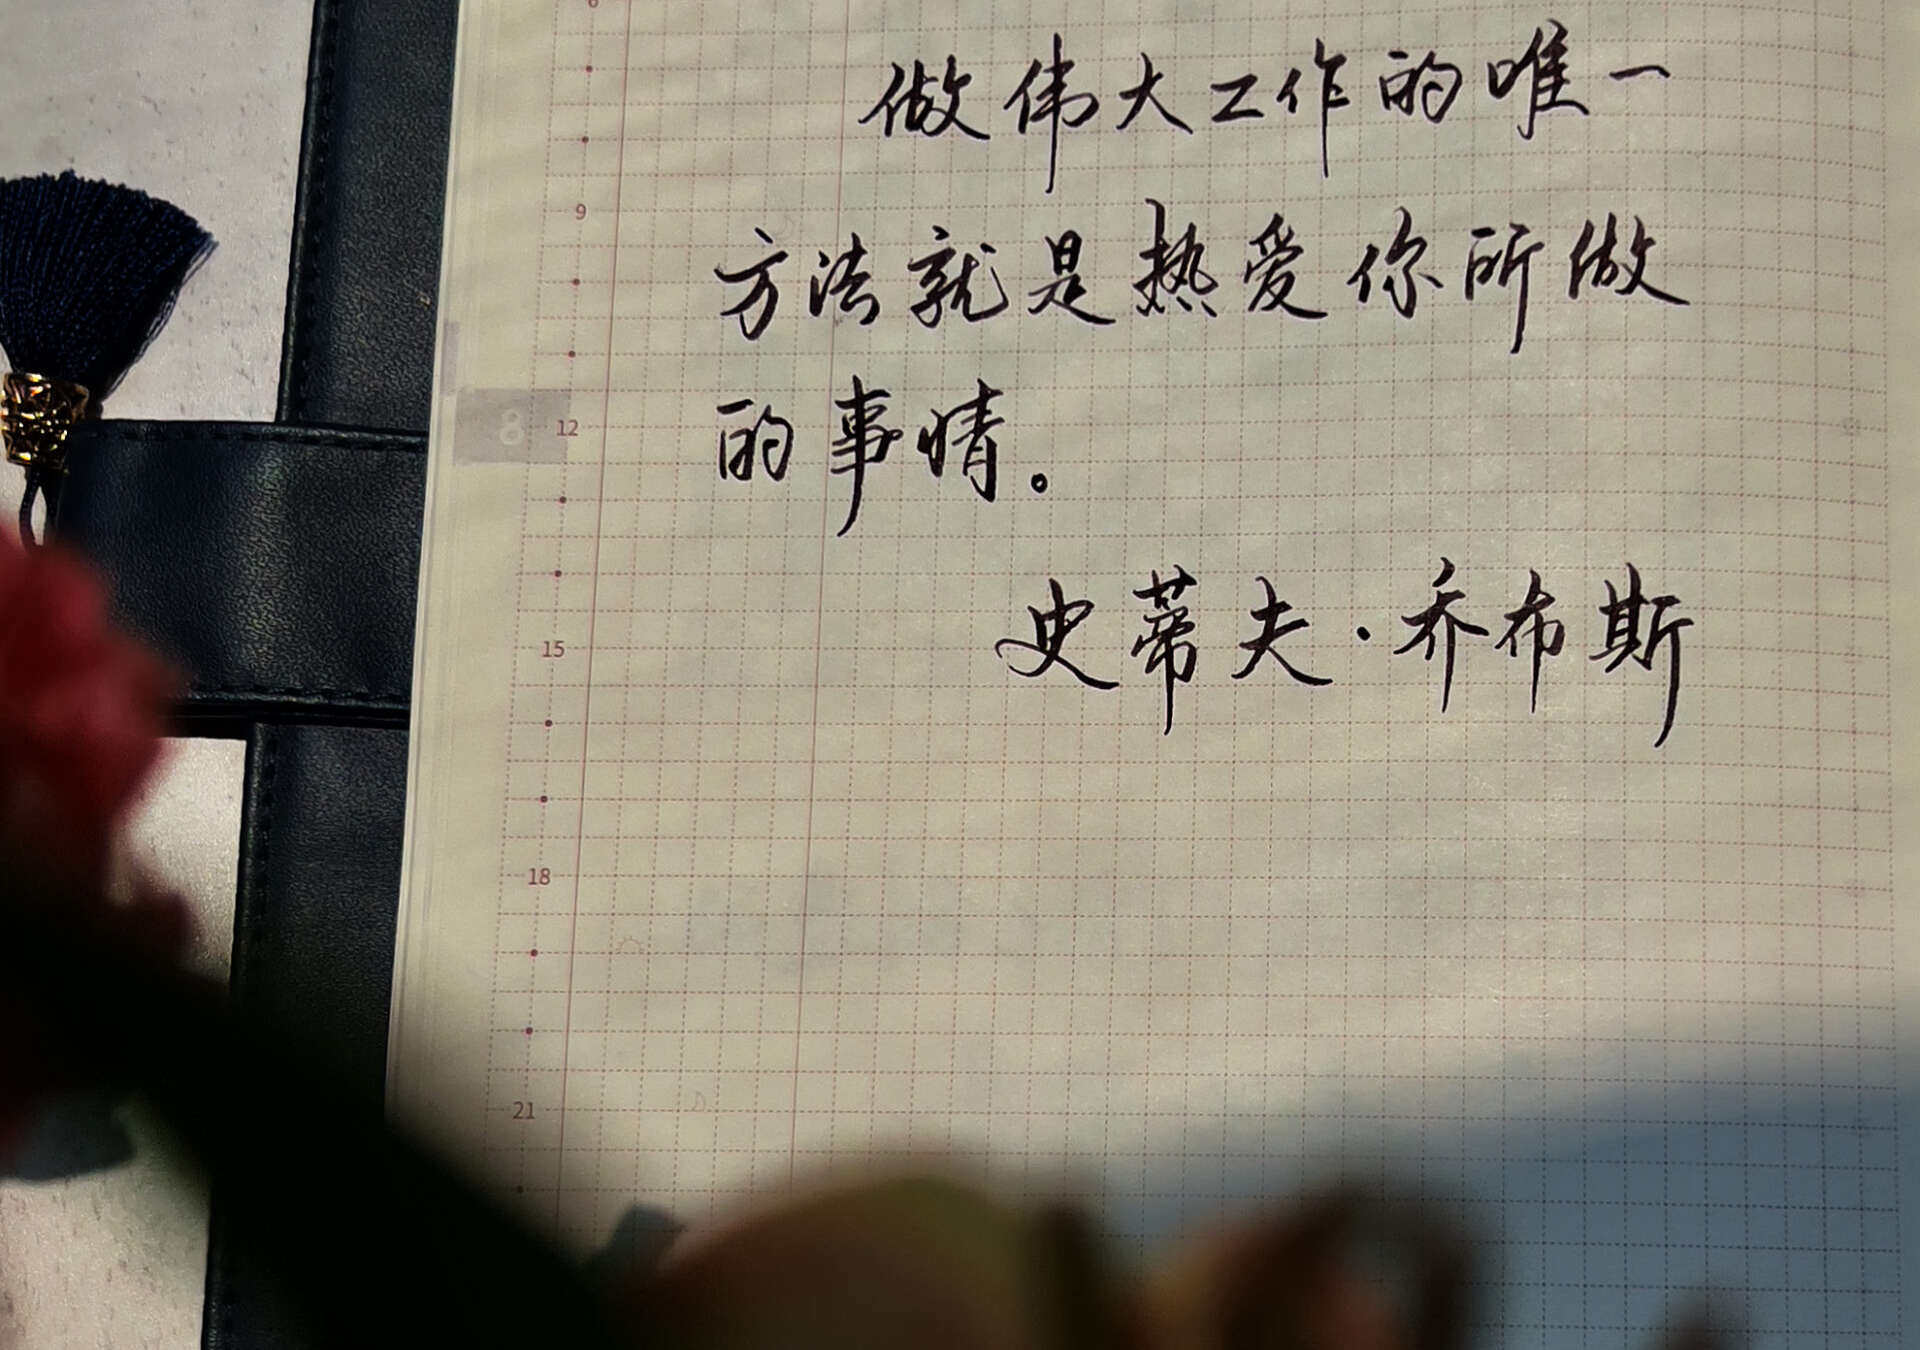 6
做伟大工作的唯一
9
方法就是热爱你所做
8 12
的事情。
史蒂夫·乔布斯
15
18
21